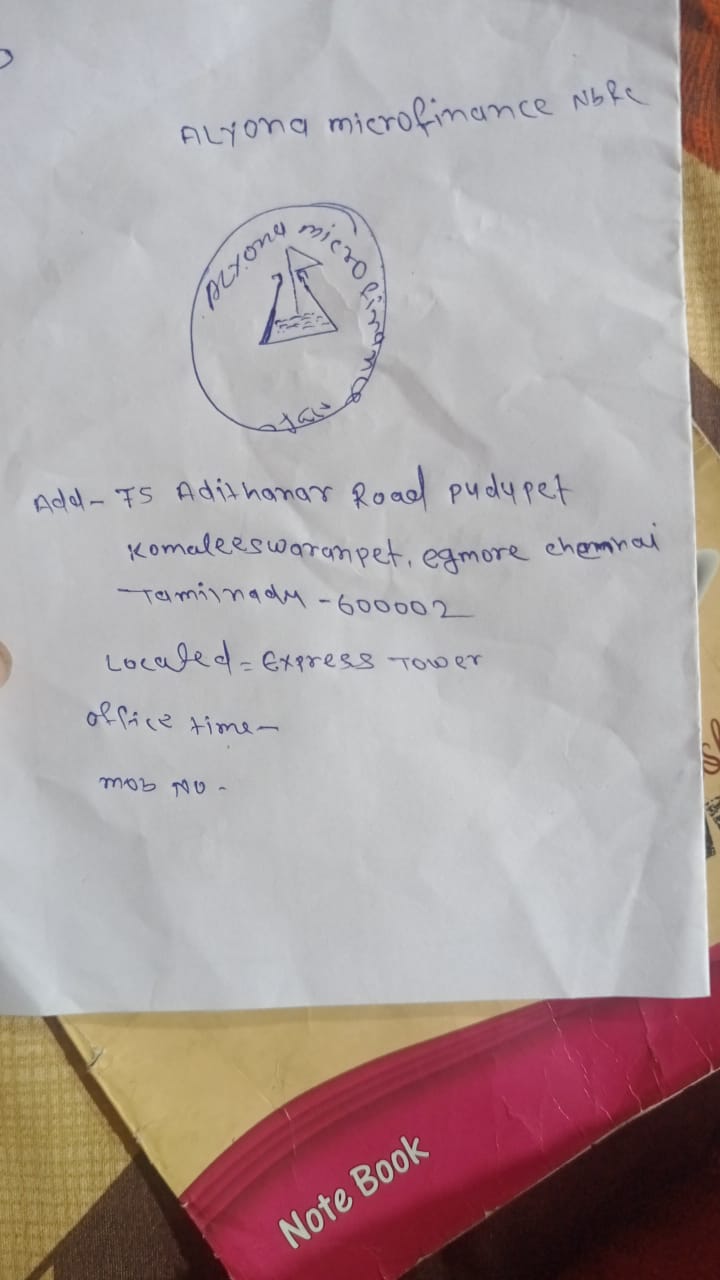 ALYona microfinance NbFc
ALYona microfinance
Add- 75 Adithanar Road pudupet
Komaleeswaranpet, egmore chennai
Tamilnadu - 600002
Located = Express Tower
office time -
mob No -
Note Book